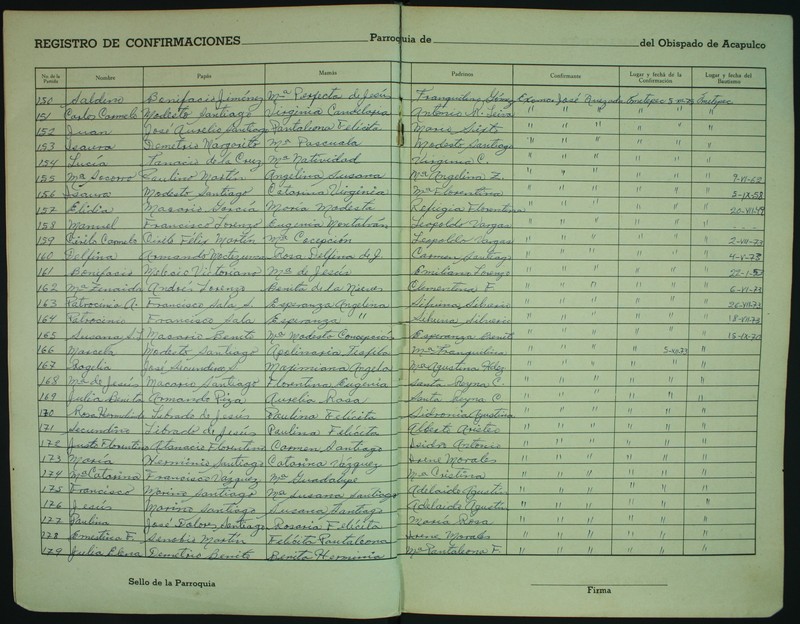 REGISTRO DE CONFIRMACIONES Parroquia de del Obispado de Acapulco
No. de la Partida Nombre Papás Mamás Padrinos Confirmante Lugar y fecha de la Confirmación Lugar y fecha del Bautismo
150 Bonifacio Jiménez Mª Perfecta de Jesús José Quezada Ometepec Ometepec
151 Carlos Carmelo Modesto Santiago Virginia Candelaria Antonio " " " " "
152 Juan José Aurelio Santiago Pantaleona Felicita Mario Sixto " " " " "
153 Isaura Demetrio Margarito Mª Pascuala Modesto Santiago " " " " "
154 Lucía de la Cruz Mª Natividad Virginia C. " " " "
155 Mª Socorro Paulino Martín Angelina Susana Mª Angelina Z. " " " " 9-VI-62
156 Isaura Modesto Santiago Catarina Virginia Mª Florentina " " " " 5-IX-58
157 Elidia Macario García María Modesta Refugia Florentina " " " " 20-VII-49
158 Manuel Francisco Lorenzo Eugenia Montalván Leopoldo Vargas " " " "
159 Carmelo Félix Martín Mª Cecepción Leopoldo Vargas " " " " 2-VII-73
160 Delfina Armando Rosa Delfina de J. Carmen Santiago " " " " 4-V-73
161 Bonifacio Melecio Victoriano Mª de Jesús Emiliano Lorenzo " " " " 22-1-52
162 Mª Zenaida Andrés Lorenzo Benita de las Nieves Clementina F. " " " " 6-VI-73
163 Patrocinio A. Francisco Sala S. Esperanza Angelina Silverio " " " " 26-VII-73
164 Patrocinio Francisco Sala Esperanza " Silverio " " " " 18-VII-73
165 Susana Macario Benito Mª Modesta Concepción Esperanza Benit " " " " 15-IX-70
166 Marcela Modesto Santiago Apolinaria Teofila Mª Tranquilina " " " 5-XII-73 "
167 Rogelia José Secundino S. Maximiana Angela Mª Agustina " " " " "
168 Mª de Jesús Macario Santiago Florentina Eugenia Santa Reyna C. " " " " "
169 Julia Benita Armando Aurelia Rosa Santa Reyna C. " " " " "
170 Rosa Librado de Jesús Paulina Felicita Sidronia Agustina " " " " "
171 Secundino Librado de Jesús Paulina Felicita Alberto " " " " "
172 Justo Florentino Atanacio Florentino Carmen Santiago Isidro Antonio " " " " "
173 María Herminio Santiago Catarina Vázquez Irene Morales " " " " "
174 Mª Catarina Francisco Vázquez Mª Guadalupe Mª Cristina " " " " "
175 Francisco Marino Santiago Mª Susana Santiago Adelaide Agustín " " " " "
176 Jesús Marino Santiago Susana Santiago Adelaide Agustín " " " " "
177 Paulina José Dolores Santiago Rosaria Felicita María Rosa " " " " "
178 Ernestina F. Martín Felicita Pantaleona Irene Morales " " " " "
179 Julia Elena Demetrio Benito Benita Herminia Mª Pantaleona F. " " " " "
Sello de la Parroquia
Firma